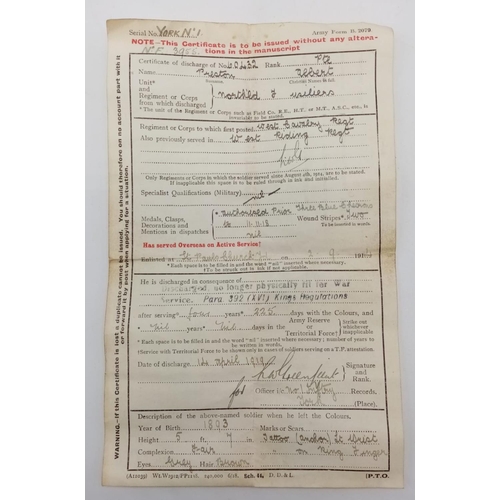 Serial No. YORK Nº 1
Army Form B. 2079
NOTE—This Certificate is to be issued without any altera-
tions in the manuscript
Certificate of discharge of No. 60432 Rank Pte
Name Preston Albert
Surname Christian Names in full
Unit* and
Regiment or Corps
from which discharged
Northld Fusiliers
*The unit of the Regiment or Corps such as Field Co. R.E., H.T. or M.T., A.S.C., etc., is
invariably to be stated.
Regiment or Corps to which first posted West Cavalry Regt
Also previously served in West Riding Regt
Only Regiments or Corps in which the soldier served since August 4th, 1914, are to be stated.
If inapplicable this space is to be ruled through in ink and initialled.
Specialist Qualifications (Military) nil
Medals, Clasps,
Decorations and
Mentions in dispatches
Authorised Prior
to 11.11.18
nil
Three Blue Chevrons
Wound Stripes* Two
To be inserted in words.
Has served Overseas on Active Service†
Enlisted at on 3 . 9 . 191
*Each space is to be filled in and the word "nil" inserted where necessary.
†To be struck out in ink if not applicable.
He is discharged in consequence of
no longer physically fit for War
Service. Para 392 (XVI) Kings Regulations
after serving* four years* 225 days with the Colours, and
* Nil years* Nil days in the
Army Reserve
or
Territorial Force†
Strike out
whichever
inapplicable
*Each space is to be filled in and the word "nil" inserted where necessary; number of years to
be written in words.
†Service with Territorial Force to be shown only in cases of soldiers serving on a T.F. attestation
Date of discharge 14 April 1919
Signature
and
Rank.
for Officer i/c No 1
York (Place).
Description of the above-named soldier when he left the Colours.
Year of Birth 1893 Marks or Scars
Height 5 ft. 7 in. Tattoo (anchor) Lt Wrist
Complexion Fair " on Ring Finger
Eyes Grey Hair Brown
Sch. 11. D. D. & L.
(P.T.O.
WARNING.—If this Certificate is lost a duplicate cannot be issued. You should therefore on no account part with it
or forward it by post when applying for a situation.